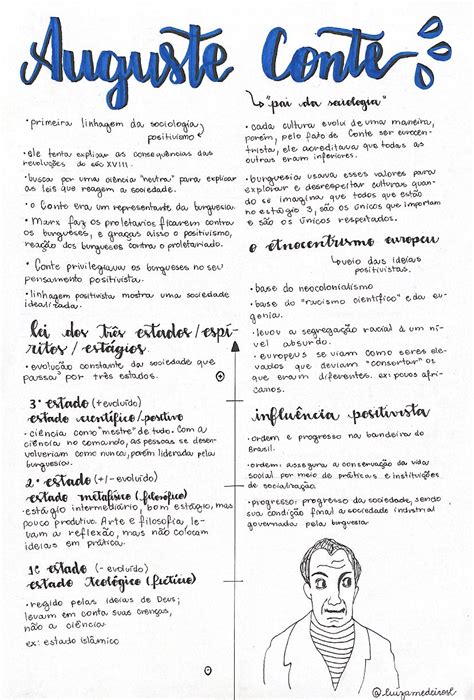 Auguste Conte
• primeira linhagem da sociologia
positivismo
• ele tenta explicar as consequências das
revoluções do séc XVIII.
• busca por uma ciência "neutra" para explicar
as leis que reagem a sociedade.
• o Conte era um representante da burguesia.
• Marx faz os proletarios ficarem contra
os burgueses, e graças aisso o positivismo,
reação dos burgueses contra o proletariado.
• Conte privilegiava os burgueses no seu
pensamento positivista.
• linhagem positivista mostra uma sociedade
idealizada.
lei dos três estados/espí-
ritos/estágios.
• evolução constante da sociedade que
passa por três estados.
3º estado (+evoluído)
estado científico/positivo
• ciência como "mestre" de tudo. Com a
ciência no comando, as pessoas se desen-
volveriam como nunca, porém liderada pela
burguesia.
2º estado (+/- evoluído)
estado metafísico (filosófico)
• estágio intermediário, bom estágio, mas
pouco produtivo. Arte e filosofia, le-
vam a reflexão, mas não colocam
ideias em prática.
1º estado (- evoluído)
estado teológico (fictício)
• regido pelas ideias de Deus;
levam em conta suas crenças,
não a ciência.
ex: estado islâmico
"pai da sociologia"
• cada cultura evolui de uma maneira,
porém, pelo fato de Conte ser eurocen-
trista, ele acreditava que todas as
outras eram inferiores.
• burguesia usava esses valores para
explorar e desrespeitar culturas quan-
do se imagina que todos que estão
no estágio 3, são os únicos que importam
e são os únicos respeitados.
o etnocentrismo europeu
veio das ideias
positivistas.
• base do neocolonialismo
• base do "racismo científico" e da eu-
genia.
• levou a segregação racial à um ní-
vel absurdo.
• europeus se viam como seres elei-
vados que deviam "consertar" os
que eram diferentes. ex: povos afri-
canos.
influência positivista
• ordem e progresso na bandeira do
Brasil.
• ordem: assegura a conservação da vida
social por meio de práticas e instituições
de socialização
• progresso: progresso da sociedade, sendo
sua condição final a sociedade industrial
governada pela burguesia
@luizamedeirosl